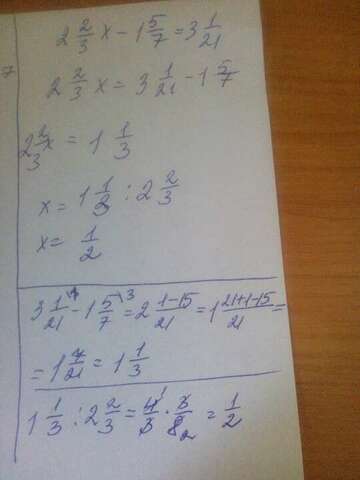 2 2/3 x - 1 5/7 = 3 1/21
2 2/3 x = 3 1/21 - 1 5/7
2 2/3 x = 1 1/3
x = 1 1/3 : 2 2/3
x = 1/2
3 1/21 \1 - 1 5/7 \3 = 2 (1-15)/21 = 1 (21+1-15)/21 =
= 1 7/21 = 1 1/3
1 1/3 : 2 2/3 = 4/3 · 3/8 = 1/2